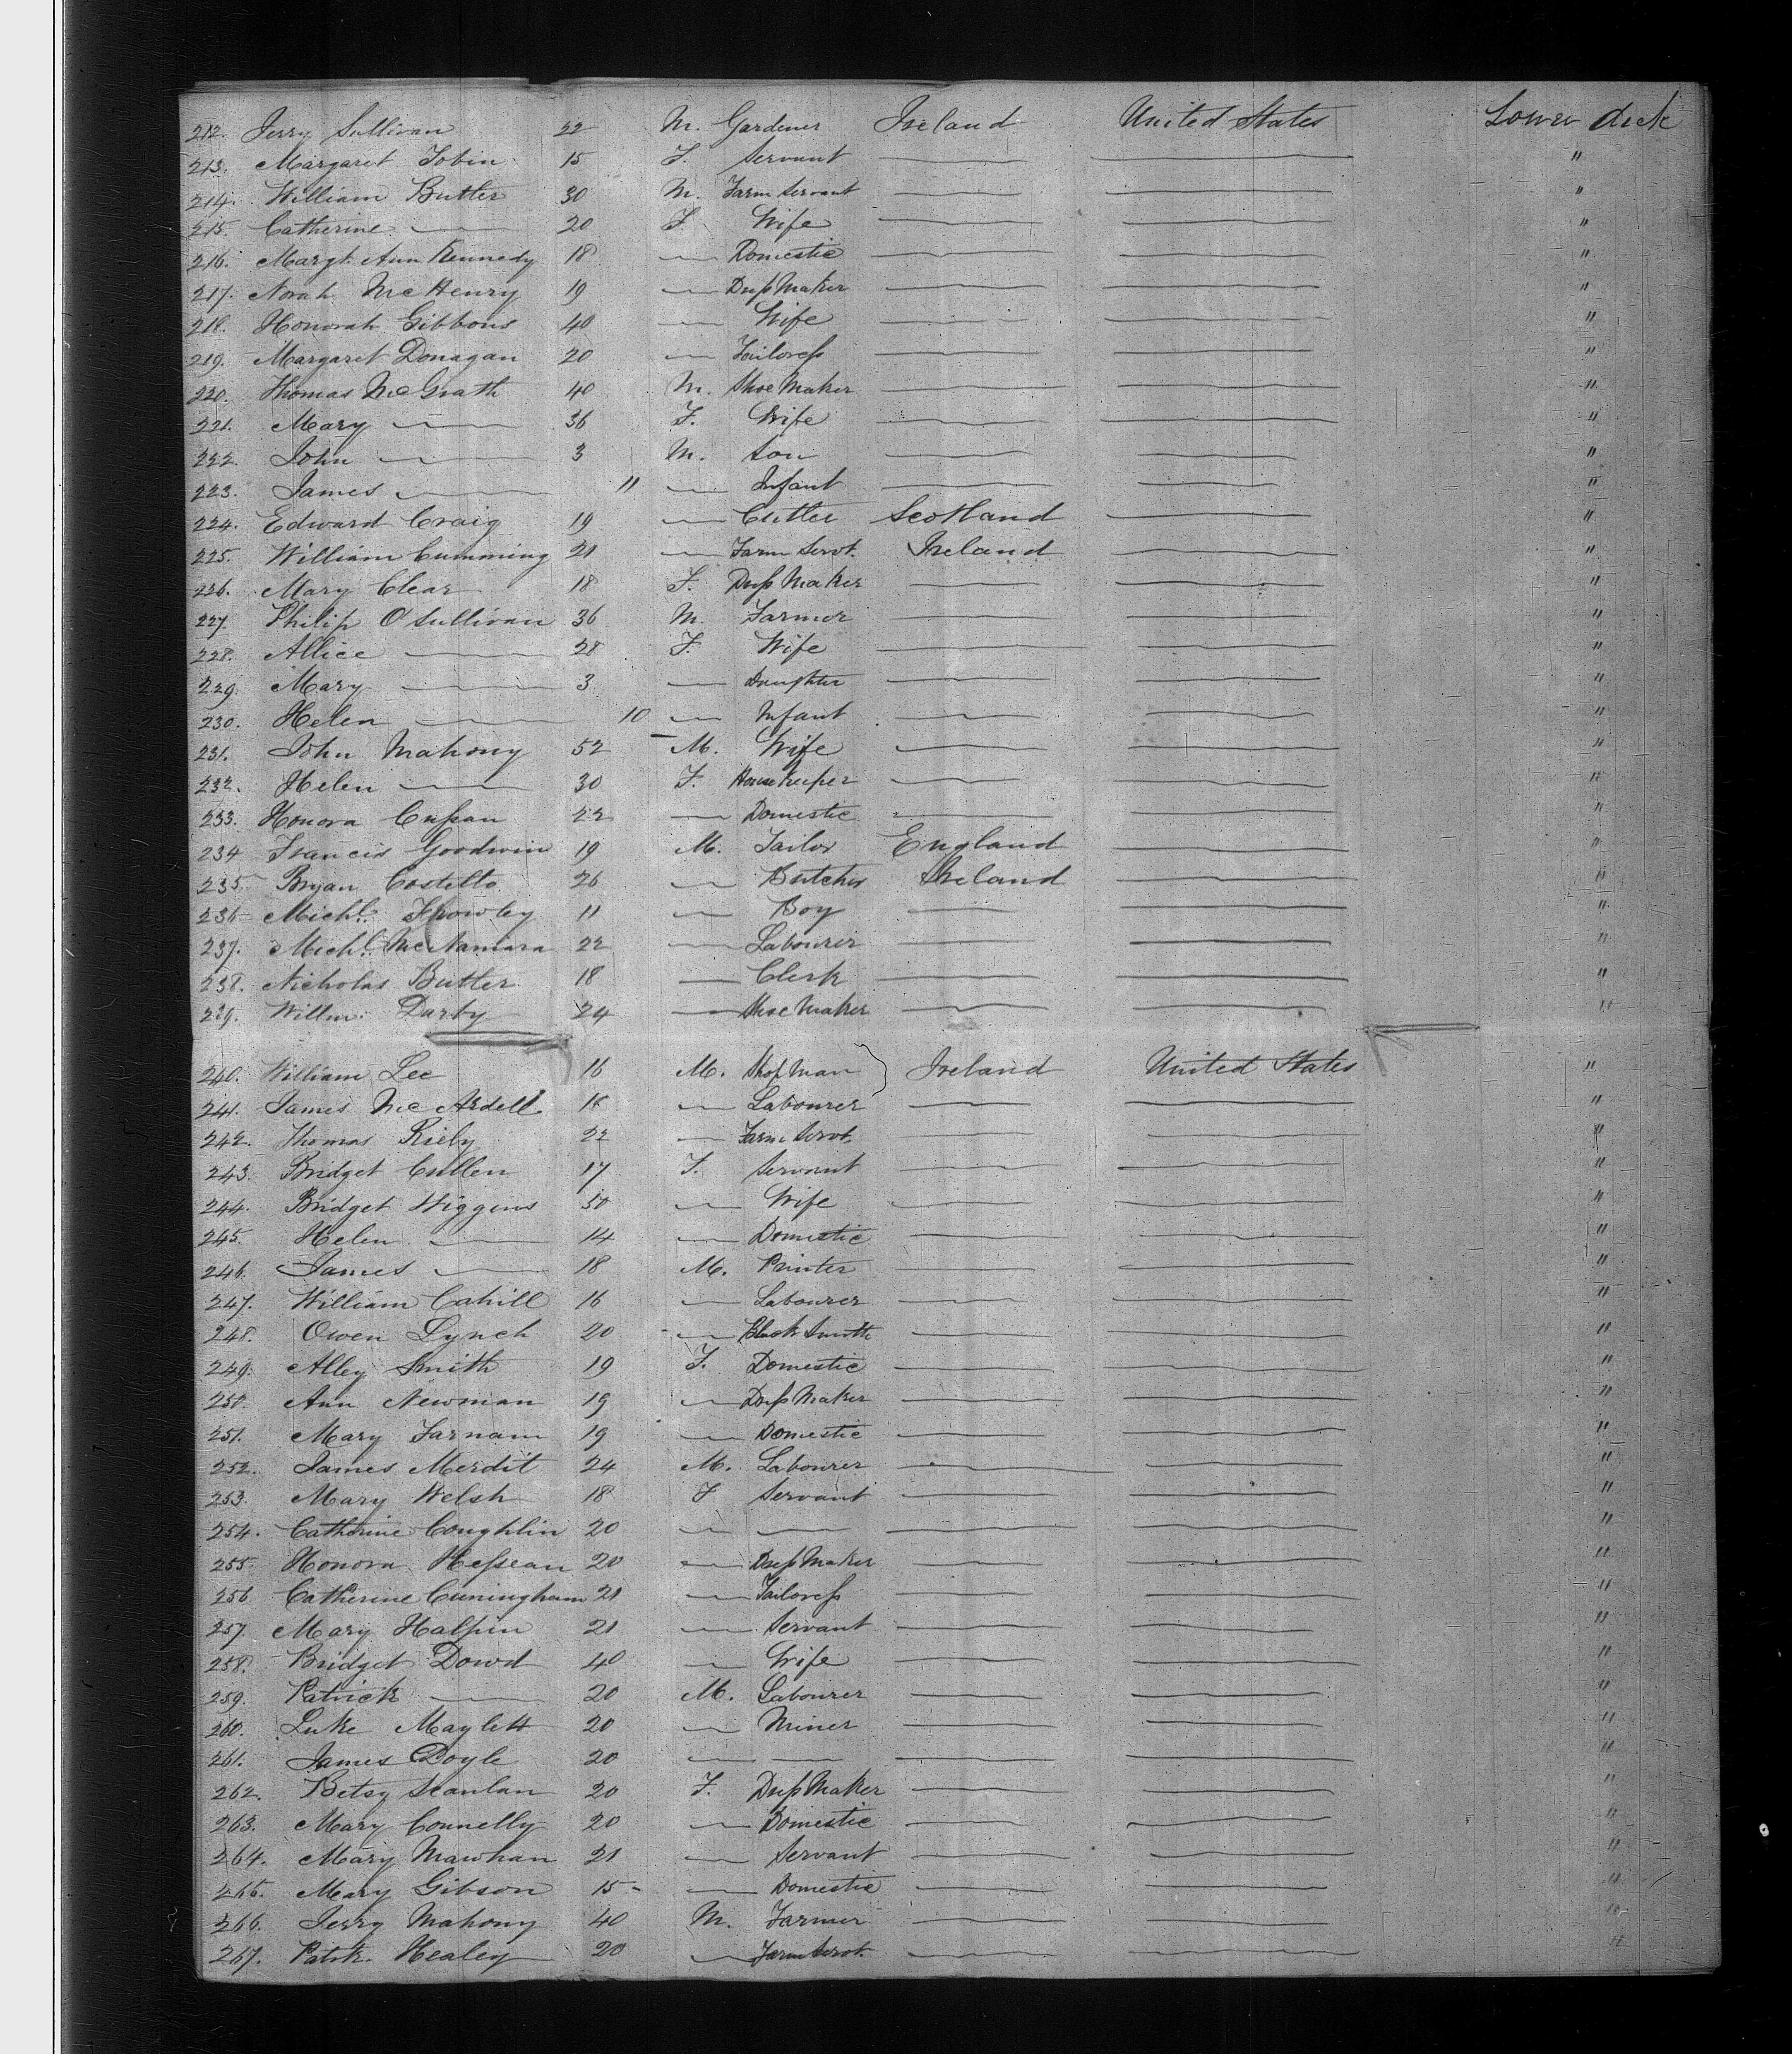 212. Jerry Sullivan 22 M. Gardener Ireland United States Lower deck
213. Margaret Tobin 15 F. Servant — — "
214. William Butler 30 M. Farm Servant — — "
215. Catherine — 20 F. Wife — — "
216. Margt. Ann Kennedy 18 — Domestic — — "
217. Norah McHenry 19 — Dress Maker — — "
218. Honorah Gibbons 40 — Wife — — "
219. Margaret Donagan 20 — Tailoress — — "
220. Thomas McGrath 40 M. Shoe Maker — — "
221. Mary — 36 F. Wife — — "
222. John — 3 M. Son — — "
223. James — 11 — Infant — — "
224. Edward Craig 19 — Scotland — "
225. William Cumming 21 — Farm Servt. Ireland — "
226. Mary Clear 18 F. Dress Maker — — "
227. Philip O'Sullivan 36 M. Farmer — — "
228. Allice — 28 F. Wife — — "
229. Mary — 3 — Daughter — — "
230. Helen — 10 — Infant — — "
231. John Mahony 52 M. Wife — — "
232. Helen — 30 F. House Keeper — — "
233. Honora Cussan 22 — Domestic — — "
234 Francis Goodwin 19 M. Tailor England — "
235 Bryan Costello 26 — Butcher Ireland — "
236 Michl. 11 — Boy — — "
237. Michl. McNamara 22 — Labourer — — "
238. Nicholas Butler 18 — Clerk — — "
239. Willm. Darby 24 — Shoe Maker — — "
240. William Lee 16 M. Shop Man Ireland United States "
241. James McArdell — Labourer — — "
242. Thomas Riely 22 — Farm Servt. — — "
243. Bridget Cullen 17 F. Servant — — "
244. Bridget Higgins 50 — Wife — — "
245. Helen — 14 — Domestic — — "
246. James — 18 M. Printer — — "
247. William Cahill 16 — Labourer — — "
248. Owen Lynch 20 — Black Smith — — "
249. Alley Smith 19 F. Domestic — — "
250. Ann Newman 19 — Dress Maker — — "
251. Mary Farnam 19 — Domestic — — "
252. James Merdit 24 M. Labourer — — "
253. Mary Welsh 18 F Servant — — "
254. Catherine Coughlin 20 — — — — "
255. Honora Hessean 20 — Dress Maker — — "
256. Catherine Cuningham 21 — Tailoress — — "
257. Mary Halpin 21 — Servant — — "
258. Bridget Dowd 40 — Wife — — "
259. Patrick — 20 M. Labourer — — "
260. Luke Maylett 20 — Miner — — "
261. James Doyle 20 — — — — "
262. Betsy Scanlan 20 F. Dress Maker — — "
263. Mary Connelly 20 — Domestic — — "
264. Mary Mawhan 21 — Servant — — "
265. Mary Gibson 15 — Domestic — — "
266. Jerry Mahony 40 M. Farmer — — "
267. Patrk. Healey 20 — Farm Servt. — — "